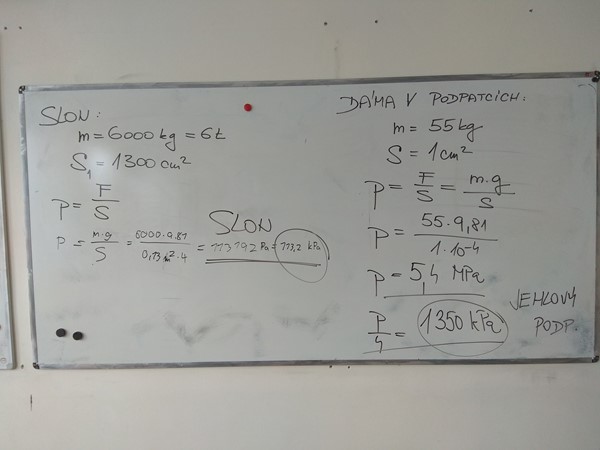 SLON:
m = 6000 kg = 6t
S₁ = 1300 cm²
P = F/S
P = m·g/S = 6000·9,81/0,13 m²·4 = 113192 Pa = 113,2 kPa
SLON
DÁMA V PODPATCÍCH:
m = 55 kg
S = 1 cm²
P = F/S = m·g/S
P = 55·9,81/1·10⁻⁴
P = 5,4 MPa
P/4 = 1350 kPa
JEHLOVÝ
PODP.